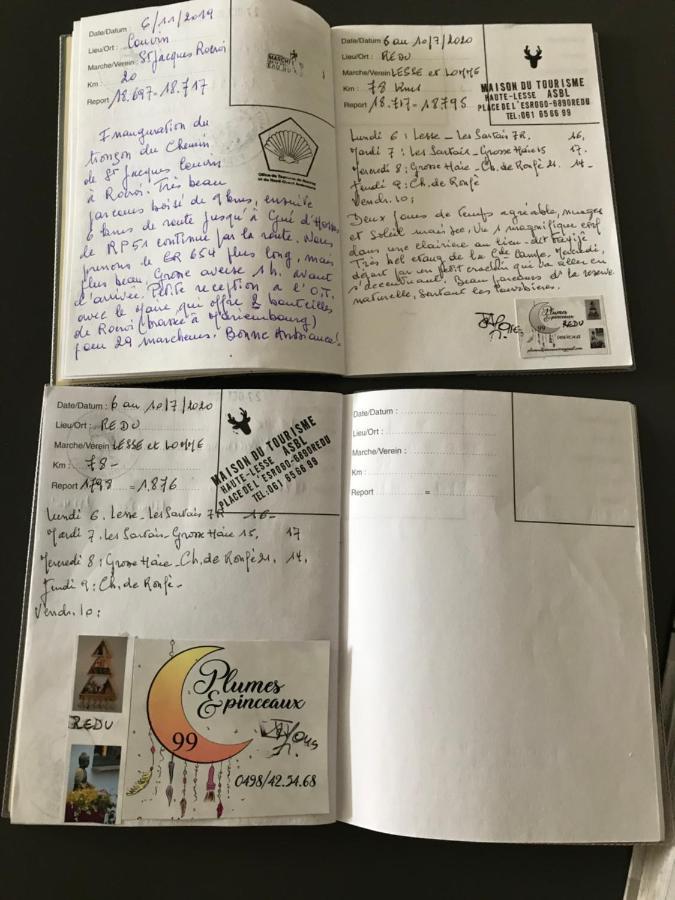 Date/Datum : 6/11/2019
Lieu/Ort : Couvin
Marche/Verein : St Jacques Rocroi
Km : 20
Report 18.697 = 18.717
Inauguration du
tronçon du Chemin
de St Jacques Couvin
à Rocroi. Très beau
parcours boisé de 9 kms, ensuite
6 kms de route jusqu'à Gué d'Hossus
de RP51 continue par la route. Nous
prenons le GR 654 plus long, mais
plus beau. Grosse averse 1h. avant
d'arrivée. Petite reception à l'O.T.
avec le Maire qui offre 2 bouteilles
de Rocroi (brassée à Mariembourg)
pour 29 marcheurs. Bonne Ambiance!
Date/Datum : 6 au 10/7/2020
Lieu/Ort : REDU
Marche/Verein : LESSE et LOMME
Km : 78 kms
Report 18.717 = 18795
MAISON DU TOURISME
HAUTE-LESSE ASBL
PLACE DE L'ESRO 60-6890 REDU
TEL:061 65 66 99
Lundi 6 : Lesse - Les Sartais 7R. 16,
Mardi 7 : Les Sartais - Grosse Haie 15 17.
Mercredi 8 : Grosse Haie - Ch. de Ronfè 21. 14-
Jeudi 9 : Ch. de Ronfè
Vendr. 10 ;
Deux jours de temps agréable, nuages
et soleil mais sec. Vu 1 magnifique cerf
dans une clairière au lieu-dit
Très bel etang de la Mercredi,
départ par un petit crachin qui va aller en
s'accentuant. Beau parcours de la reserve
naturelle, sentant les tourbières.
Plumes
& pinceaux
99
REDU
Date/Datum : 6 au 10/7/2020
Lieu/Ort : REDU
Marche/Verein : LESSE et LOMME
Km : 78 -
Report 1798 = 1.876
MAISON DU TOURISME
HAUTE-LESSE ASBL
PLACE DE L'ESRO 60-6890 REDU
TEL:061 65 66 99
Lundi 6. Lesse - Les Sartais 7R 16-
Mardi 7. Les Sartais - Grosse Haie 15, 17
Mercredi 8 : Grosse Haie - Ch. de Ronfè 21. 14,
Jeudi 9 : Ch. de Ronfè -
Vendr. 10 :
REDU
Plumes
& pinceaux
99
0498/42.54.68
Date/Datum :
Lieu/Ort :
Marche/Verein :
Km :
Report =